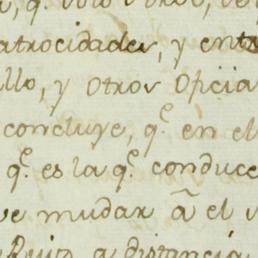 atrocidades, y entr
llo, y otros Oficia
concluye, q.^e en el
q.^e es la q.^e conduce
ve mudar â el v
a distancia